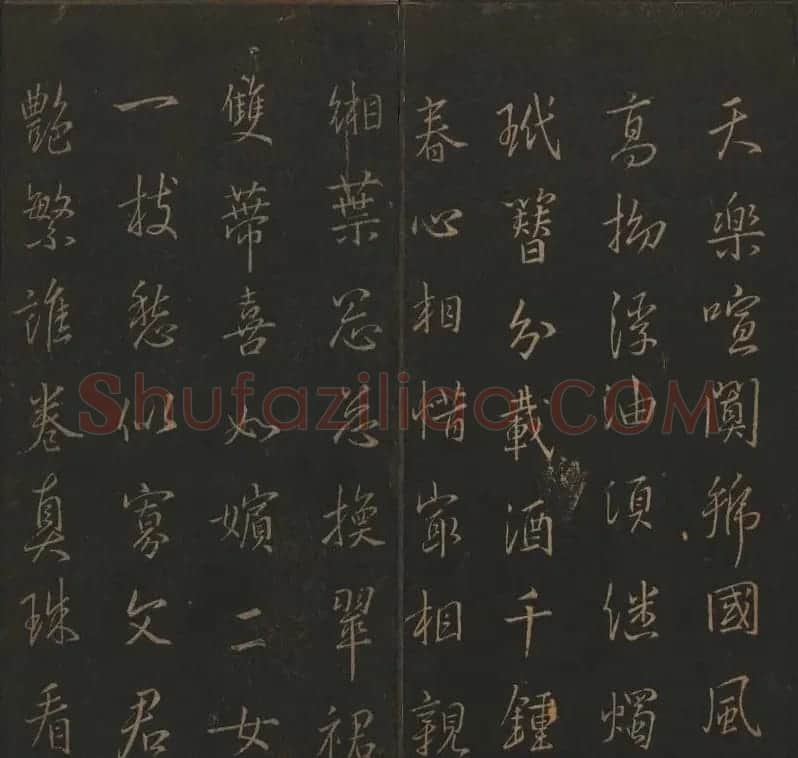 天樂喧闐國風
高浮油須继燭
玳簪分載酒千鍾
春心相惜㝡相親
緗葉換翠裙
雙蒂喜如嬪二女
一枝愁似寡文君
艷繁誰卷真珠看
Shufaziliao.COM